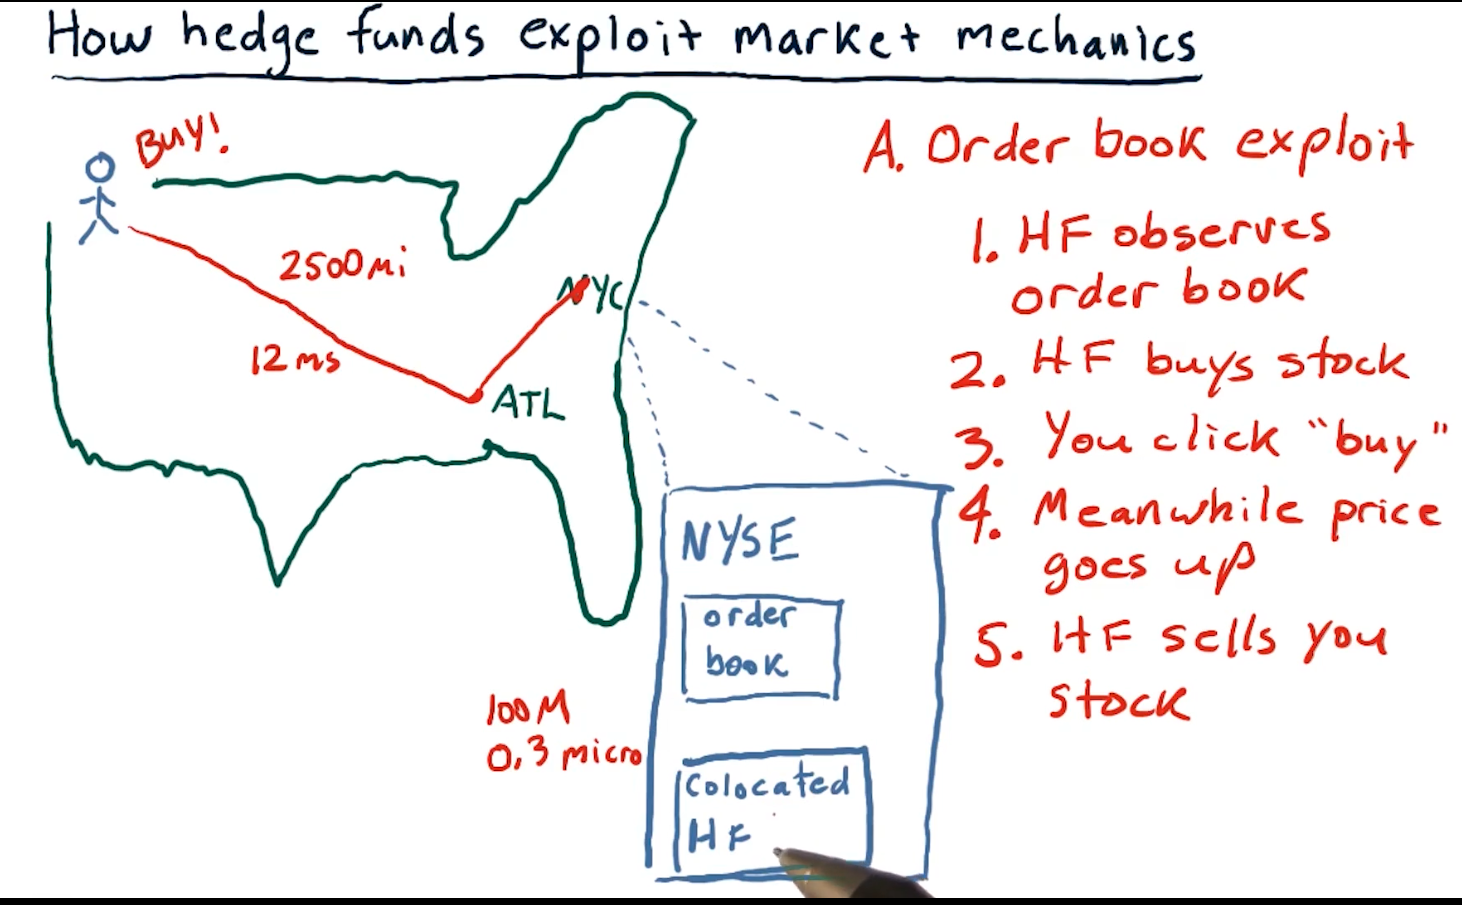 How hedge funds exploit market mechanics
BUY!
2500mi
12ms
NYC
ATL
NYSE
order
book
100M
0,3 micro
Colocated
HF
A. Order book exploit
1. HF observes
order book
2. HF buys stock
3. You click "buy"
4. Meanwhile price
goes up
5. HF sells you
stock